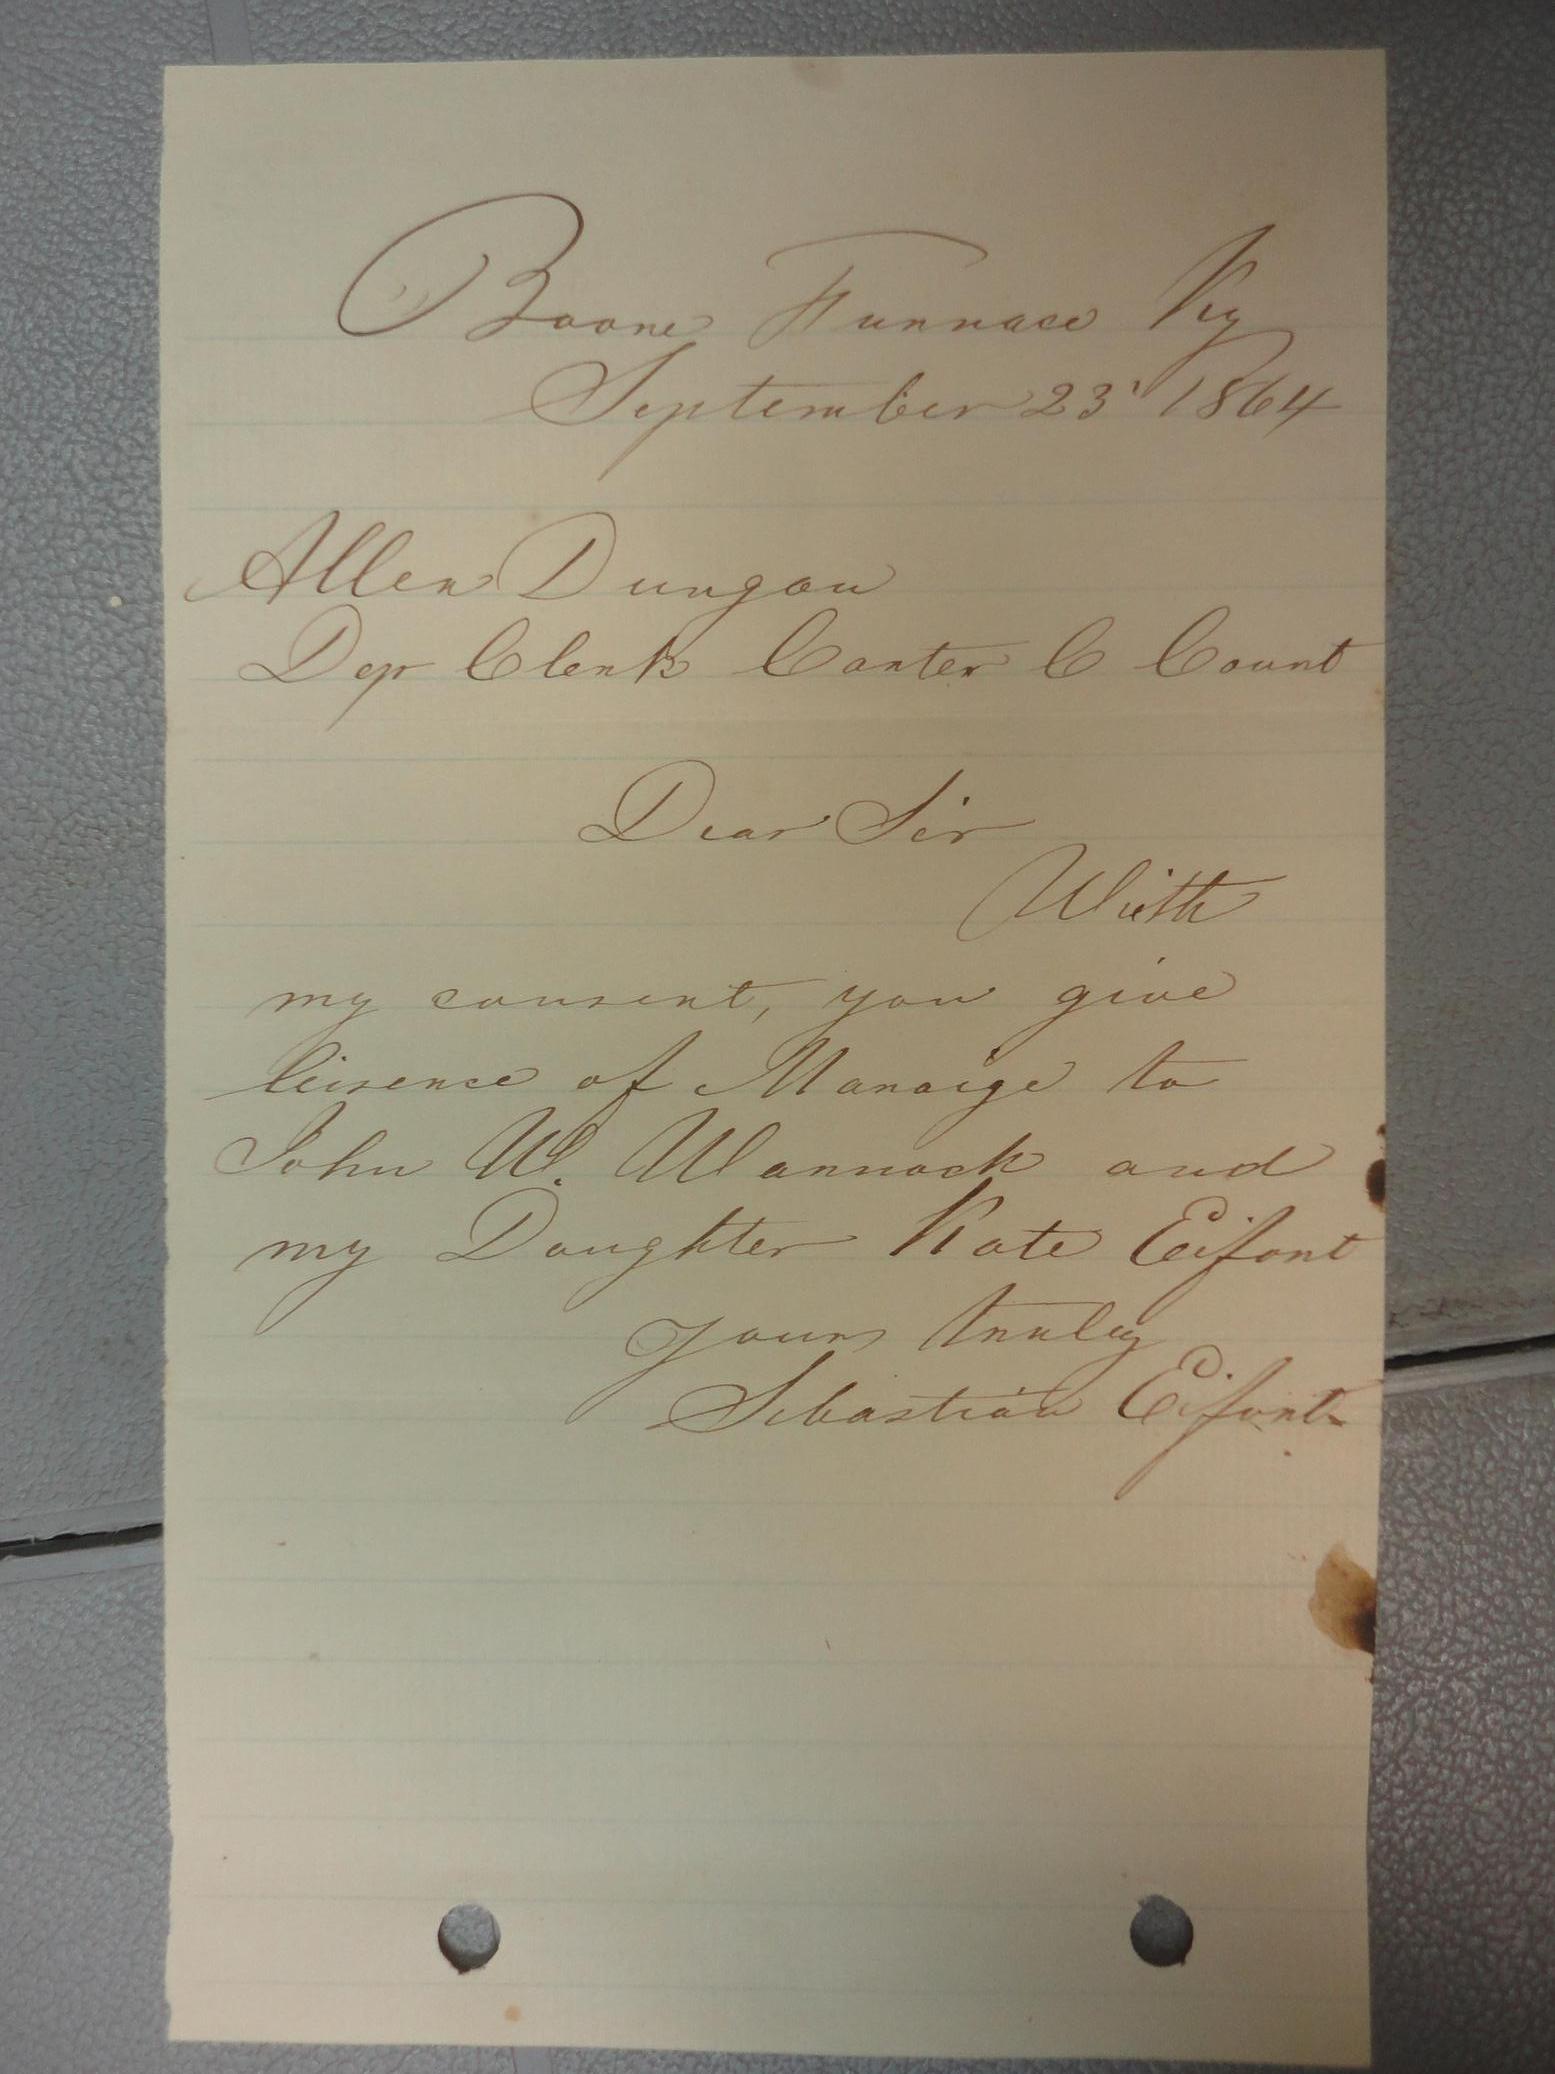 Boone Furnace Ky
September 23' 1864
Allen Dungan
Dep Clerk Carter C Court
Dear Sir
With
my consent, you give
liisence of Maraige to
John W. Warnock and
my Daughter Kate Eifort
Yours truly
Sebastian Eifort